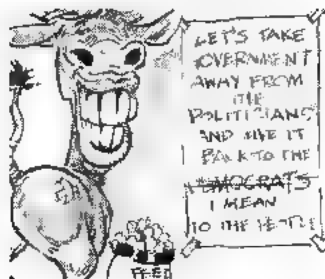 LET'S TAKE
GOVERNMENT
AWAY FROM
THE
POLITICIANS
AND GIVE IT
BACK TO THE
DEMOCRATS
I MEAN
TO THE PEOPLE
FEED